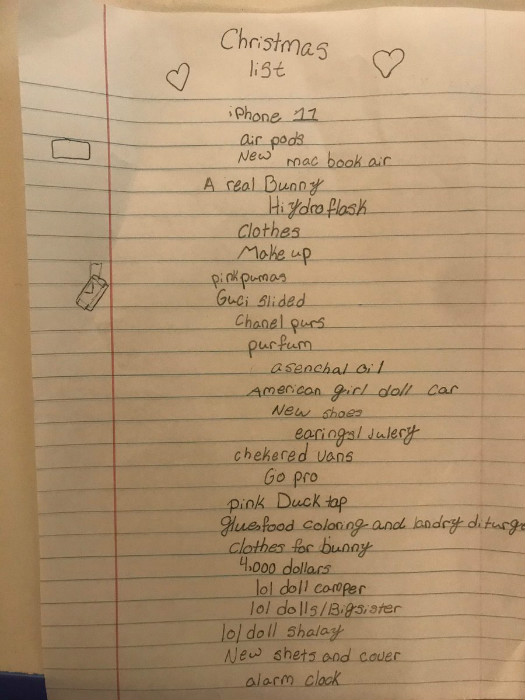 Christmas
list
iPhone 11
air pods
New mac book air
A real Bunny
Hiydroflask
Clothes
Make up
pink pumas
Guci slided
Chanel purs
purfum
asenchal oil
American girl doll car
New shoes
earings/Julery
chekered vans
Go pro
pink Duck tap
glue food coloring and landry diturg
Clothes for bunny
4,000 dollars
lol doll camper
lol dolls/Bigsister
lol doll shalay
New shets and cover
alarm clock